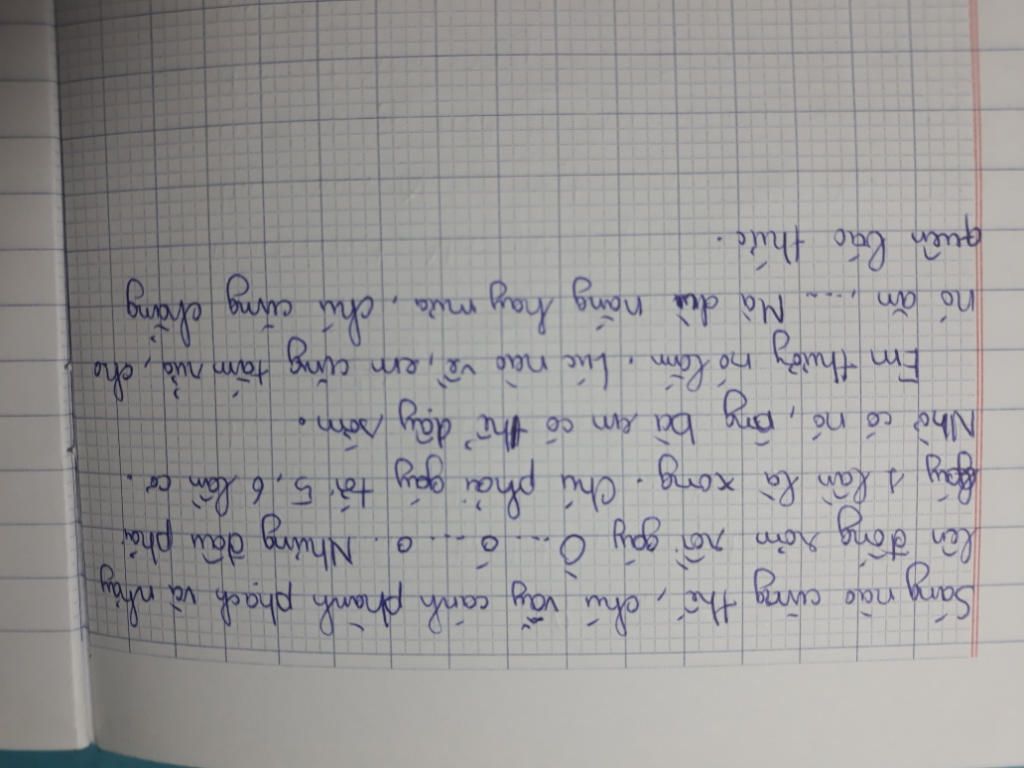 Sáng nào cũng thế, chú vẫy cánh phành phạch và nhảy
lên đống rơm rồi gáy Ò...ó...o. Nhưng đâu phải
gáy 1 lần là xong. Chú phải gáy tới 5, 6 lần cơ.
Nhờ có nó, ông bà em có thể dậy sớm.
Em thương nó lắm. Lúc nào về, em cũng tắm rửa, cho
nó ăn,.... Mà dù nắng hay mưa, chú cũng chẳng
quên báo thức.